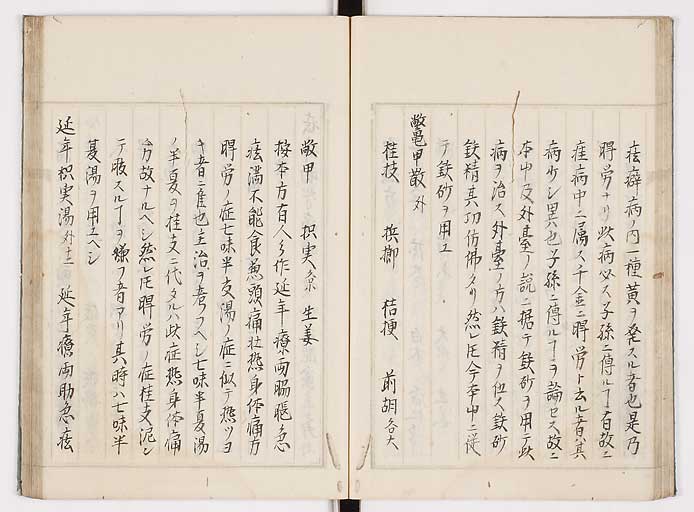 痃癖病ノ内一種黄ヲ発スル者也是乃
脾労ナリ此病必ス子孫ニ傳ルヿ有故ニ
痃病中ニ属ス千金ニ脾労ト云ル者ハ其
病少シ異也子孫ニ傳ルヿヲ論セス故ニ
本中及外臺ノ説ニ据テ鉄砂ヲ用テ此
病ヲ治ス外臺ノ方ハ鉄精ヲ但ス鉄砂
鉄精其功仿佛タリ然レ𪜈今本中ニ従
テ鉄砂ヲ用ユ
鼈甲散 外
桂枝 梹榔 桔梗 前胡各大
鼈甲 枳実各 生姜
按本方百人多作延年療両脇脹急
痃満不能食兼頭痛壮熱身体痛方
脾労ノ症七味半夏湯ノ症ニ似テ熱ツヨ
キ者ニ宜也主治ヲ考フヘシ七味半夏湯
ノ半夏ヲ桂支ニ代タルハ此症熱身体痛
ノ方故ナルヘシ然レ𪜈脾労ノ症桂支泥シ
テ服スルヿヲ嫌フ者アリ其時ハ七味半
夏湯ヲ用ユヘシ
延年枳実湯外十二 延年療両助急痃